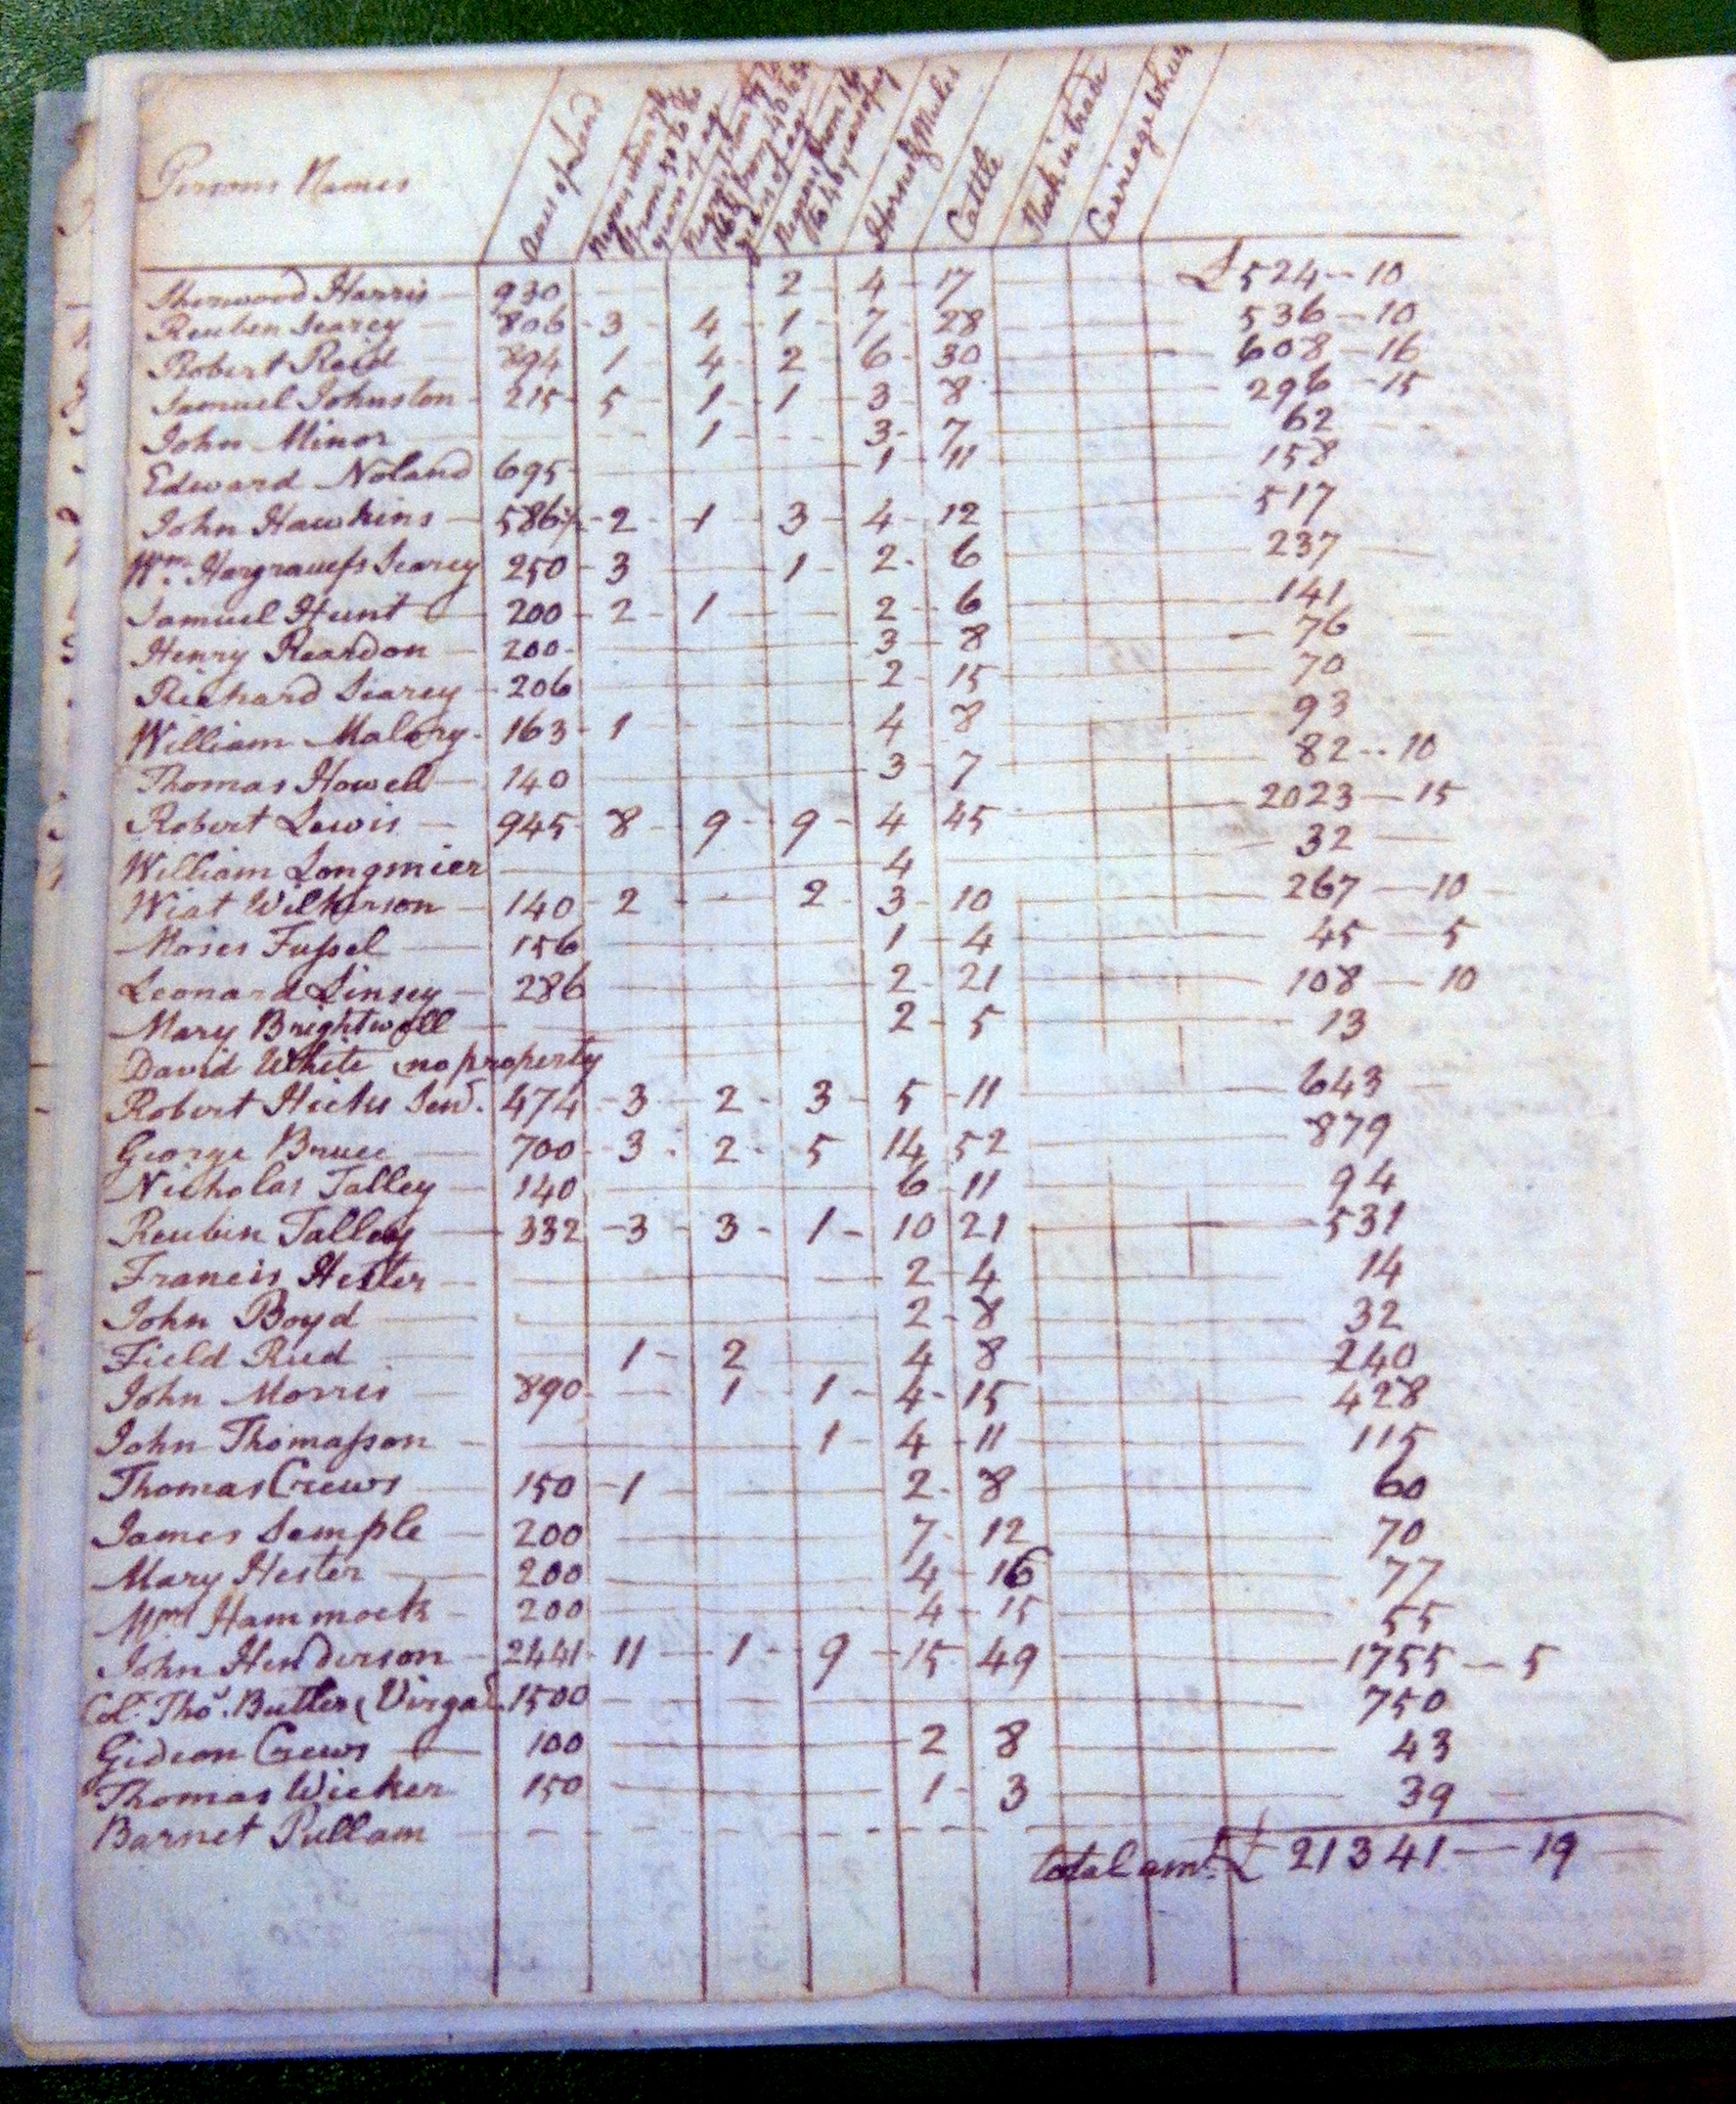 Persons Names Acres of Land Negroes from 50 to 60 years of age Negroes from 40 to 50 years of age Negroes from 16 to 40 years of age Horses & Mules Cattle Stock in trade Carriage Wheels
Sherwood Harris 930 2 4 17 £524--10
Reuben Searcy 806 3 4 1 7 28 536-10
Robert Reid 894 1 4 2 6 30 608-16
Samuel Johnston 215 5 1 1 3 8 296-15
John Minor 1 3 7 62
Edward Noland 695 1 11 158
John Hawkins 586½ 2 1 3 4 12 517
Wm. Hargraves Searcy 250 3 1 2 6 237
Samuel Hunt 200 2 1 2 6 141
Henry Reardon 200 3 8 76
Richard Searcy 206 2 15 70
William Malory 163 1 4 8 93
Thomas Howell 140 3 7 82--10
Robert Lewis 945 8 9 9 4 45 2023-15
William Longmier 4 32
Wiat Wilkerson 140 2 2 3 10 267-10
Moses Fussel 156 1 4 45-5
Leonard Linsey 286 2 21 108-10
Mary Brightwell 2 5 13
David White no property
Robert Hicks Senr. 474 3 2 3 5 11 643
George Bruce 700 3 2 5 14 52 879
Nicholas Talley 140 6 11 94
Reubin Talley 332 3 3 1 10 21 531
Francis Hester 2 4 14
John Boyd 2 8 32
Field Reed 1 2 4 8 240
John Morris 890 1 1 4 15 428
John Thomasson 1 4 11 115
Thomas Crews 150 1 2 8 60
James Semple 200 7 12 70
Mary Hester 200 4 16 77
Wm Hammock 200 4 15 55
John Henderson 2441 11 1 9 15 49 1755-5
Col. Thos. Butler (Virga. 1500 750
Gideon Crews 100 2 8 43
Thomas Wicker 150 1 3 39
Barnet Pullam
total amt. £21341-19